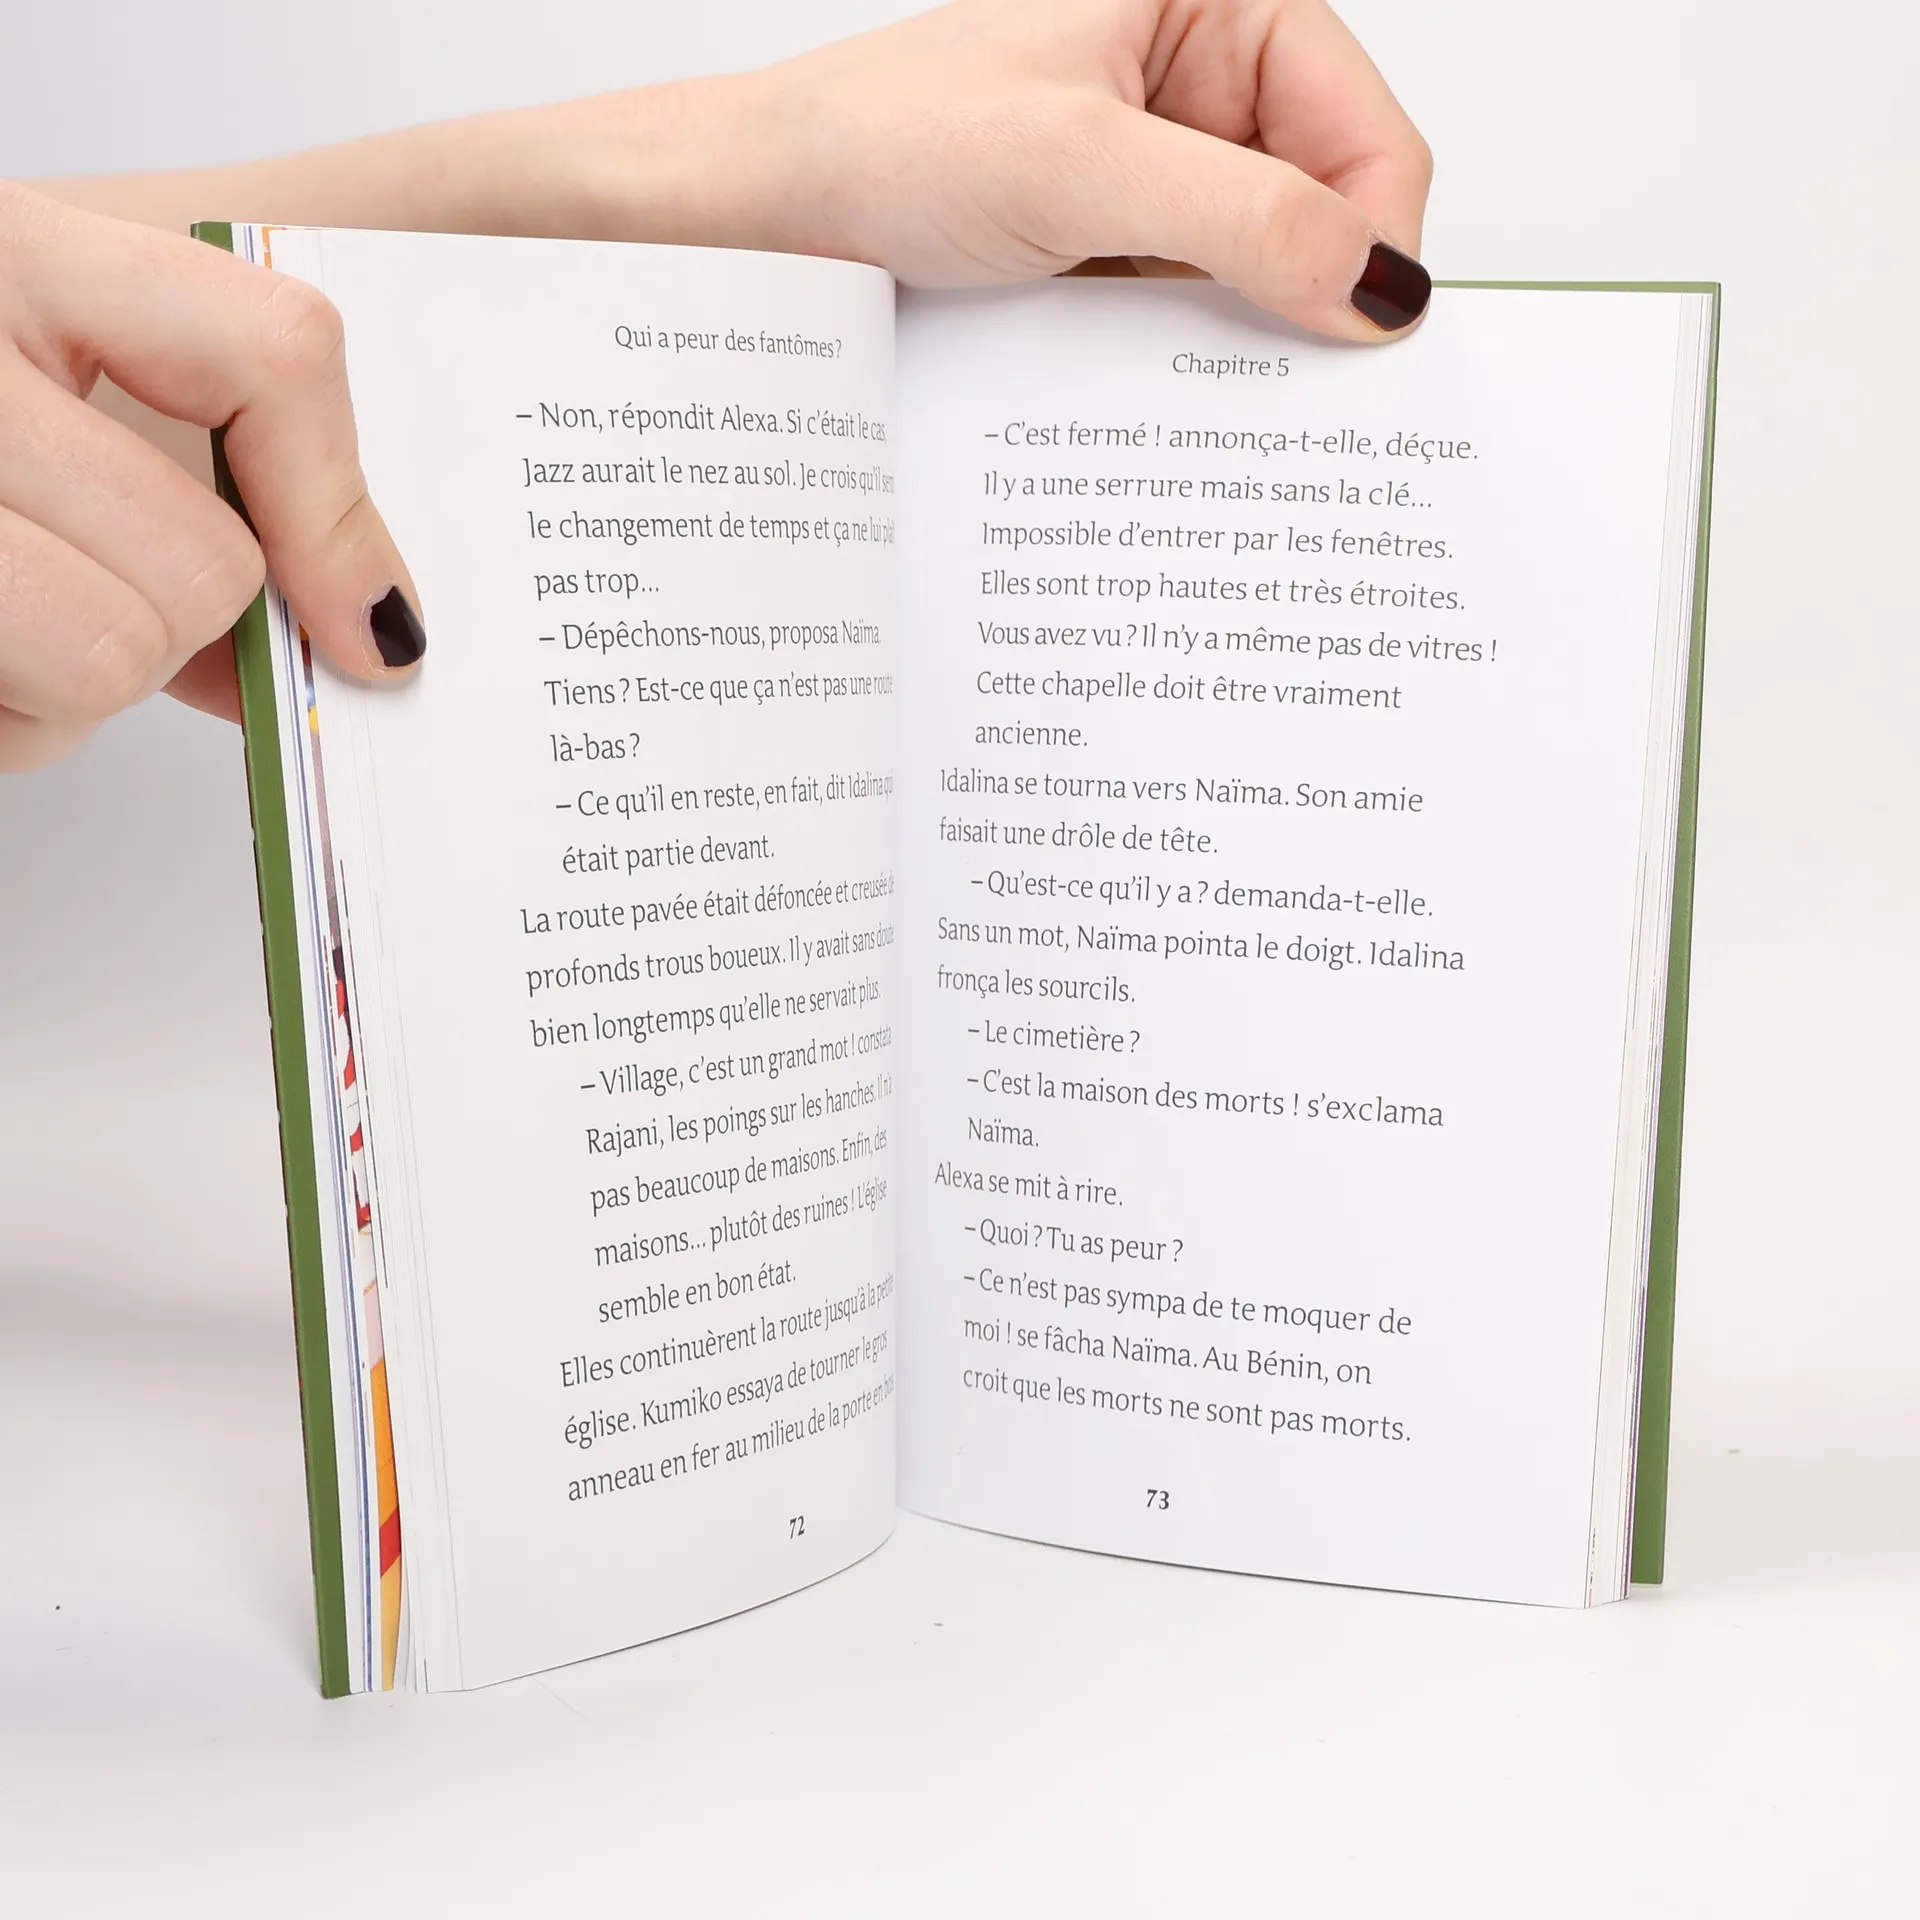 Qui a peur des fantômes ?
– Non, répondit Alexa. Si c'était le cas,
Jazz aurait le nez au sol. Je crois qu'il sent
le changement de temps et ça ne lui plaît
pas trop...
– Dépêchons-nous, proposa Naïma.
Tiens ? Est-ce que ça n'est pas une route
là-bas ?
– Ce qu'il en reste, en fait, dit Idalina qui
était partie devant.
La route pavée était défoncée et creusée de
profonds trous boueux. Il y avait sans doute
bien longtemps qu'elle ne servait plus.
– Village, c'est un grand mot ! constata
Rajani, les poings sur les hanches. Il n'a
pas beaucoup de maisons. Enfin, des
maisons... plutôt des ruines ! L'église
semble en bon état.
Elles continuèrent la route jusqu'à la petite
église. Kumiko essaya de tourner le gros
anneau en fer au milieu de la porte en bois
72
Chapitre 5
– C'est fermé ! annonça-t-elle, déçue.
Il y a une serrure mais sans la clé...
Impossible d'entrer par les fenêtres.
Elles sont trop hautes et très étroites.
Vous avez vu ? Il n'y a même pas de vitres !
Cette chapelle doit être vraiment
ancienne.
Idalina se tourna vers Naïma. Son amie
faisait une drôle de tête.
– Qu'est-ce qu'il y a ? demanda-t-elle.
Sans un mot, Naïma pointa le doigt. Idalina
fronça les sourcils.
– Le cimetière ?
– C'est la maison des morts ! s'exclama
Naïma.
Alexa se mit à rire.
– Quoi ? Tu as peur ?
– Ce n'est pas sympa de te moquer de
moi ! se fâcha Naïma. Au Bénin, on
croit que les morts ne sont pas morts.
73